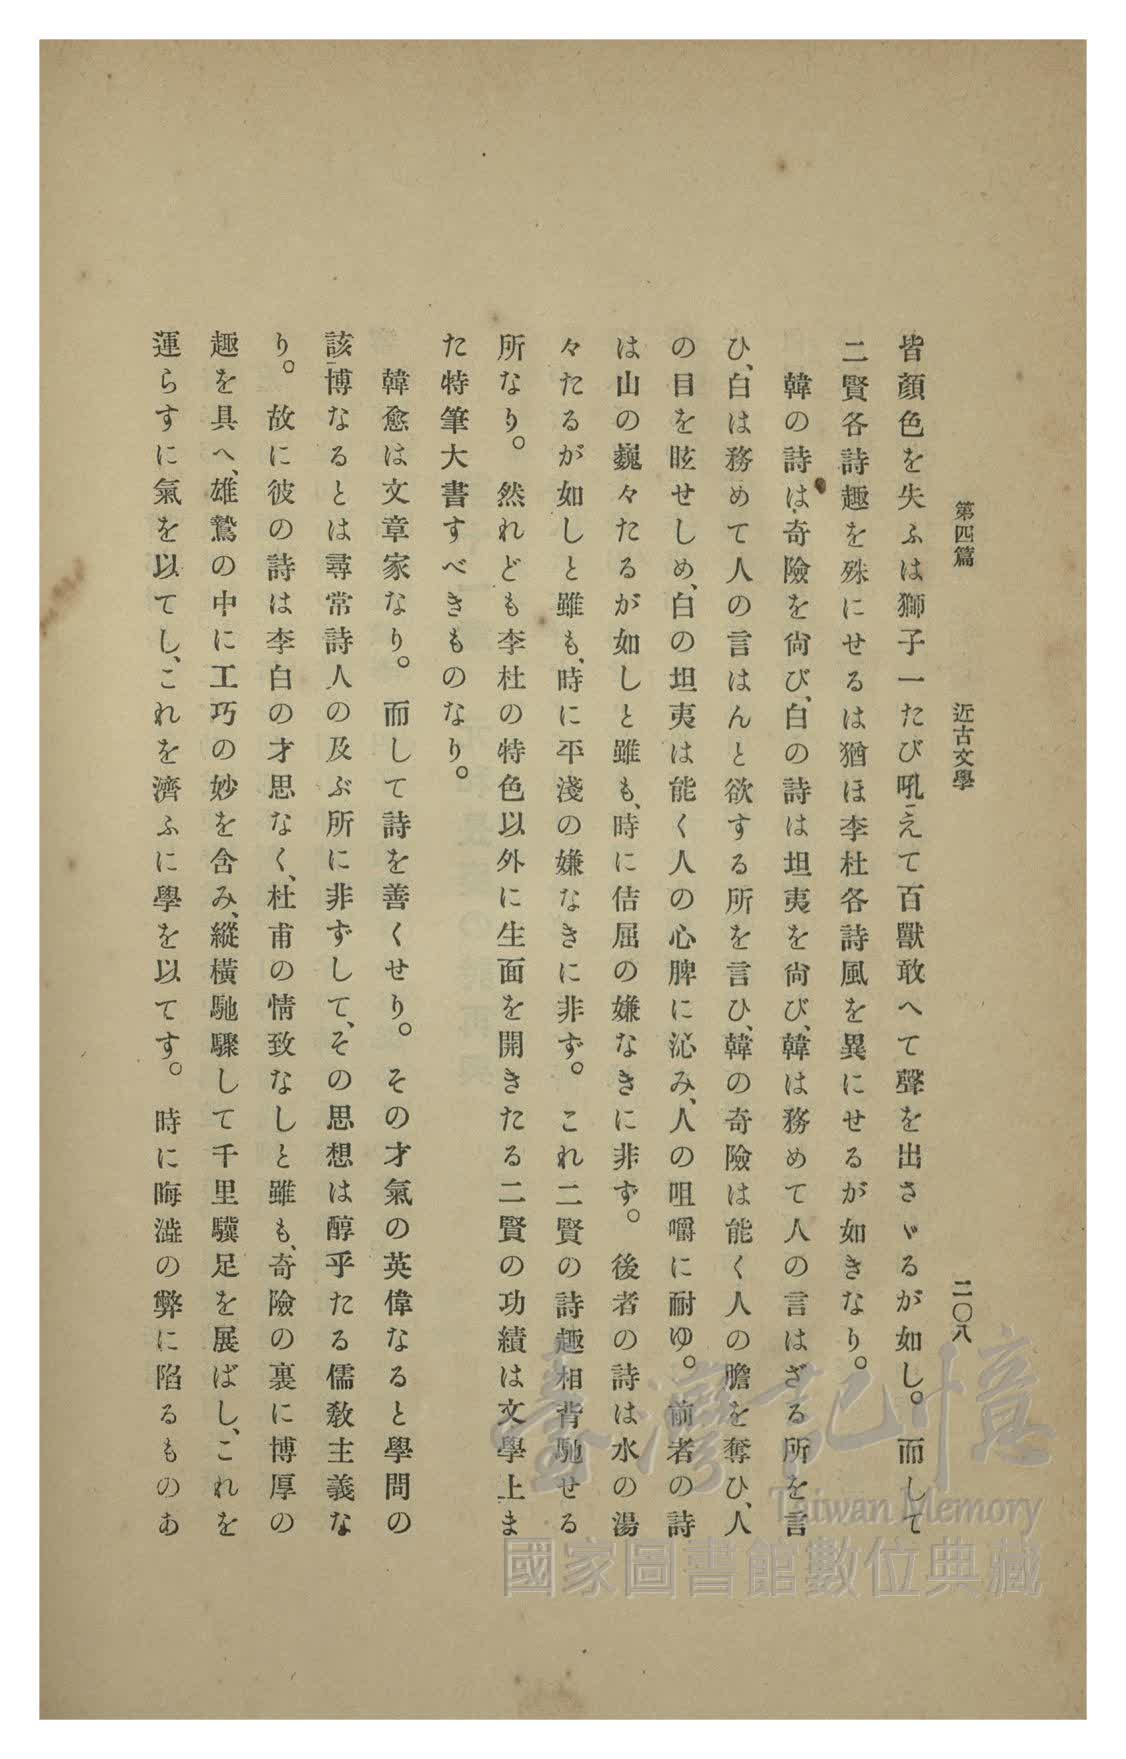 第四篇　近古文學　二〇八
皆顏色を失ふは獅子一たび吼えて百獸敢へて聲を出さゞるが如し。而して
二賢各詩趣を殊にせるは猶ほ李杜各詩風を異にせるが如きなり。
韓の詩は奇險を尙び、白の詩は坦夷を尙び、韓は務めて人の言はざる所を言
ひ、白は務めて人の言はんと欲する所を言ひ、韓の奇險は能く人の膽を奪ひ、人
の目を眩せしめ、白の坦夷は能く人の心脾に沁み、人の咀嚼に耐ゆ。前者の詩
は山の巍々たるが如しと雖も、時に佶屈の嫌なきに非ず。後者の詩は水の湯
々たるが如しと雖も、時に平淺の嫌なきに非ず。これ二賢の詩趣相背馳せる
所なり。然れども李杜の特色以外に生面を開きたる二賢の功績は文學上ま
た特筆大書すべきものなり。
韓愈は文章家なり。而して詩を善くせり。その才氣の英偉なると學問の
該博なるとは尋常詩人の及ぶ所に非ずして、その思想は醇乎たる儒敎主義な
り。故に彼の詩は李白の才思なく、杜甫の情致なしと雖も、奇險の裏に博厚の
趣を具へ、雄鷙の中に工巧の妙を含み、縱橫馳驟して千里驥足を展ばし、これを
運らすに氣を以てし、これを濟ふに學を以てす。時に晦澁の弊に陷るものあ
臺灣記憶
Taiwan Memory
國家圖書館數位典藏